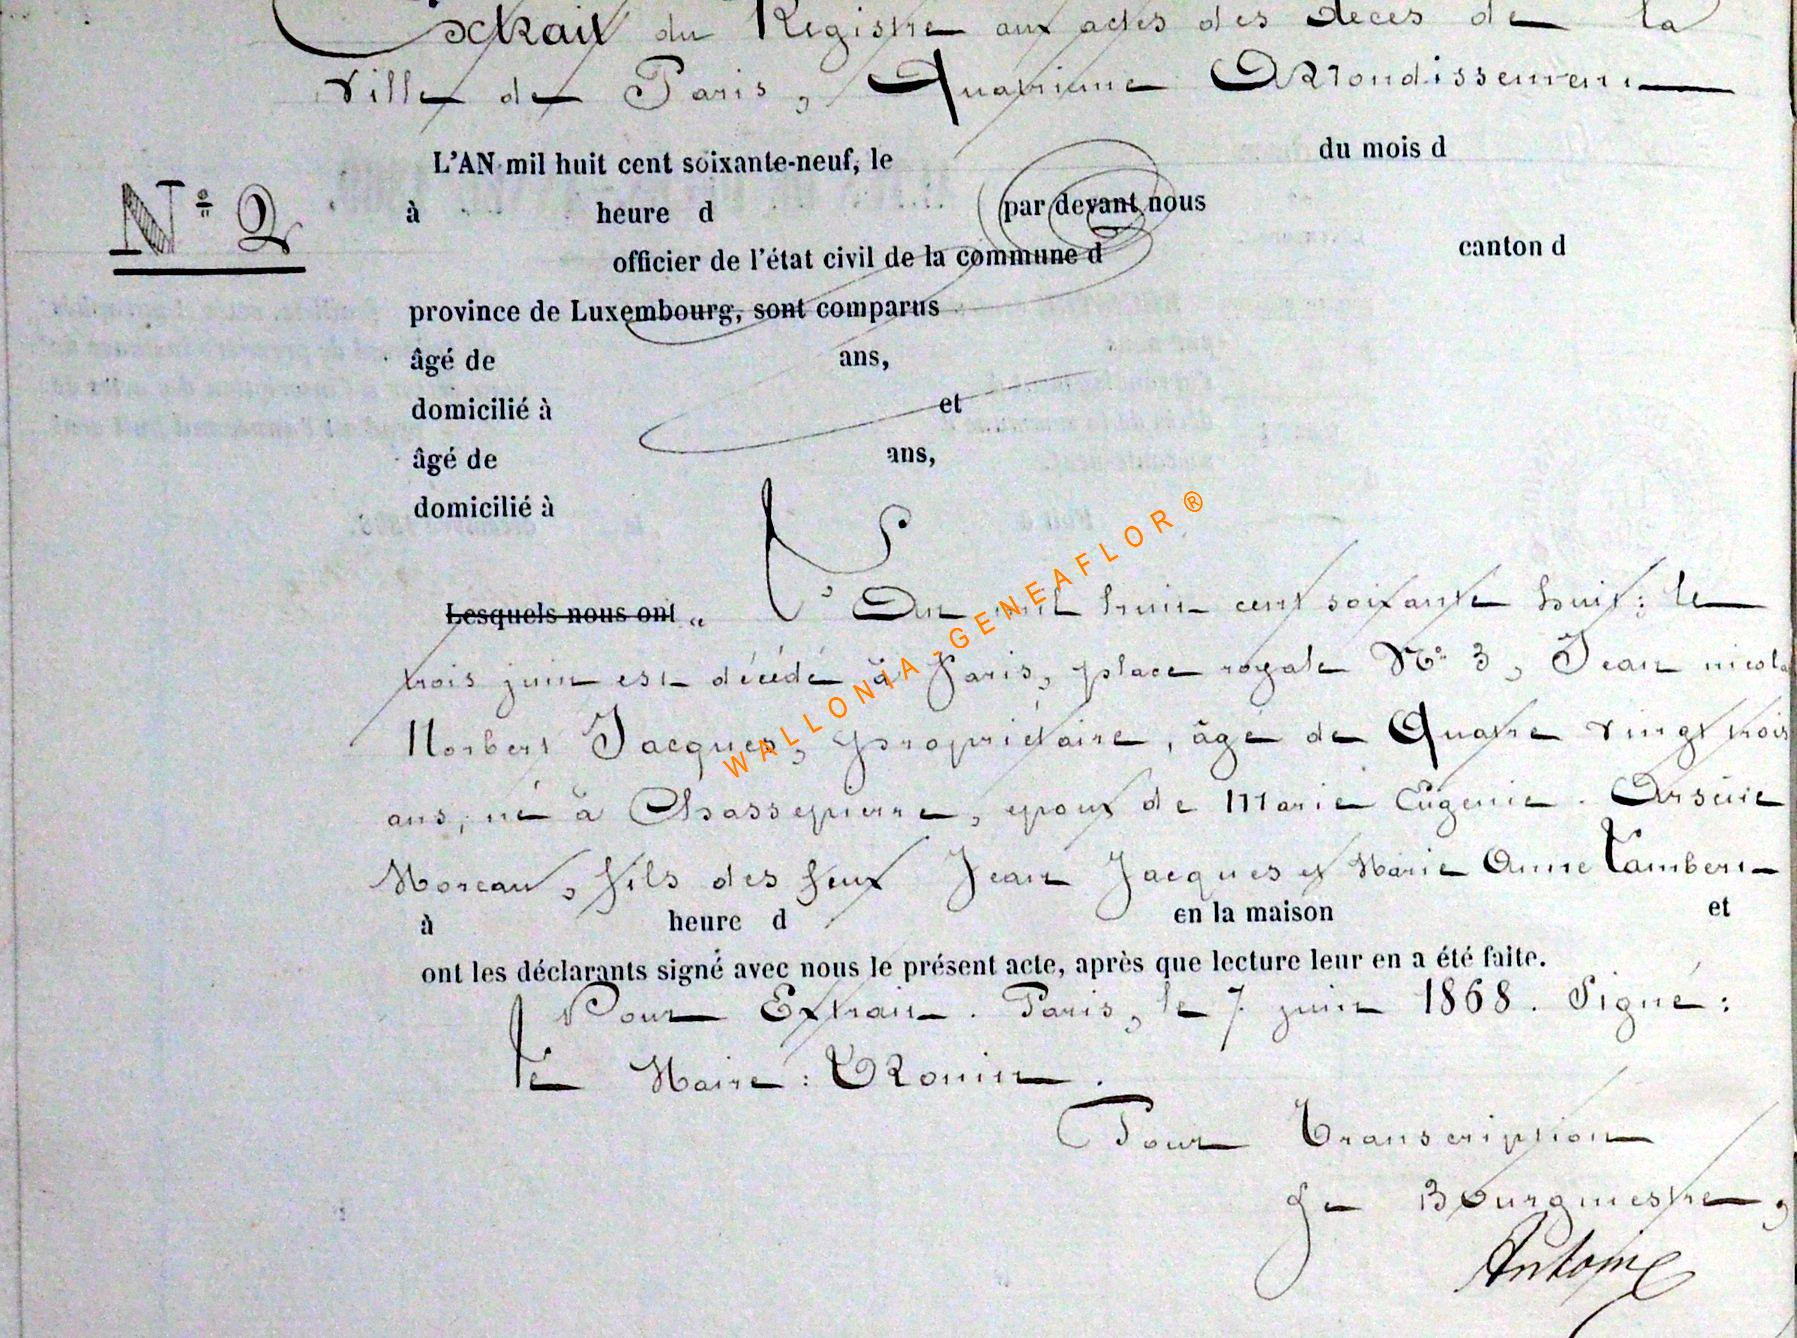 Extrait du Registre aux actes des décès de la
Ville de Paris, Quatrieme Arrondissement
N° 2
L'AN mil huit cent soixante-neuf, le du mois d
à heure d par devant nous
officier de l'état civil de la commune d canton d
province de Luxembourg, sont comparus
âgé de ans,
domicilié à et
âgé de ans,
domicilié à
Lesquels nous ont „ L'an mil huit cent soixante huit; le
trois juin est décédé à Paris, place royale N° 3, Jean nicolas
Norbert Jacques, propriétaire, âgé de Quatre vingt trois
ans, né à Chassepierre, epoux de Marie Eugenie Arsène
Moreau, fils des feux Jean Jacques et Marie Anne Lambert
à heure d en la maison et
ont les déclarants signé avec nous le présent acte, après que lecture leur en a été faite.
Pour Extrait. Paris, le 7 juin 1868. Signé:
le Maire:
Pour Transcription
Le Bourgmestre,
Antoine
WALLONIA-GENEAFLOR®